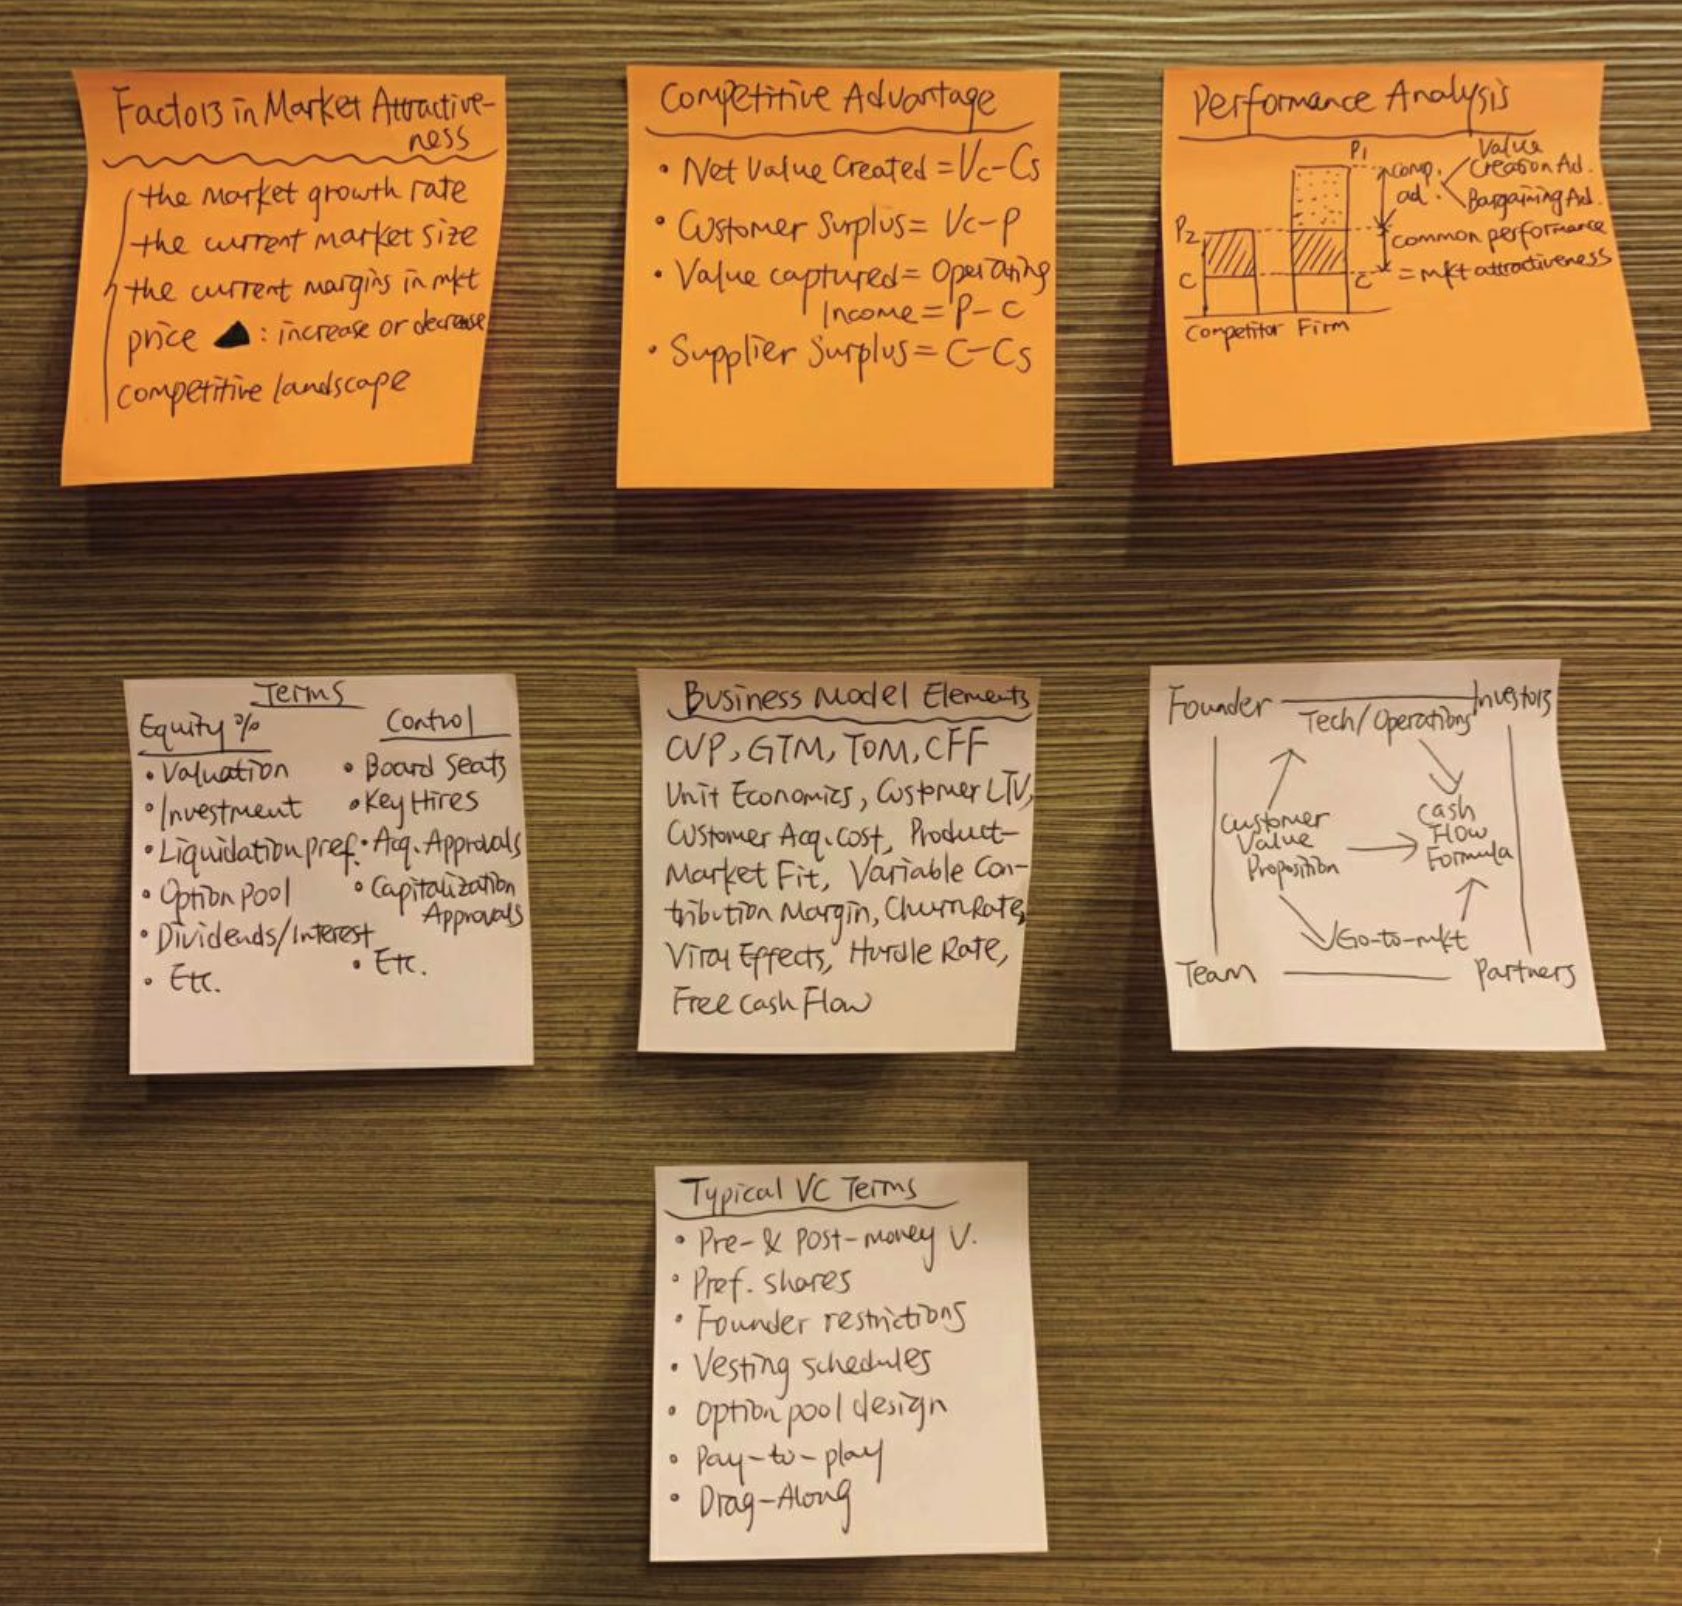 Factors in Market Attractive-
ness
the market growth rate
the current market size
the current margins in mkt
price ▲: increase or decrease
competitive landscape
Competitive Advantage
• Net Value Created = Vc-Cs
• Customer Surplus = Vc-P
• Value captured = Operating
Income = P-C
• Supplier Surplus = C-Cs
Performance Analysis
P1
comp.
ad.
Value
Creation Ad.
Bargaining Ad.
P2
common performance
= mkt attractiveness
C
C
Competitor Firm
Terms
Equity %
• Valuation
• Investment
• Liquidation pref.
• Option Pool
• Dividends/Interest
• Etc.
Control
• Board Seats
• Key Hires
• Acq. Approvals
• Capitalization
Approvals
• Etc.
Business Model Elements
CVP, GTM, TOM, CFF
Unit Economics, Customer LTV,
Customer Acq. cost, Product-
Market Fit, Variable Con-
tribution Margin, Churn Rate,
Viral Effects, Hurdle Rate,
Free Cash Flow
Founder Investors
Tech/Operations
Customer
Value
Proposition
Cash
Flow
Formula
Go-to-mkt
Team Partners
Typical VC Terms
• Pre- & Post-money V.
• Pref. shares
• Founder restrictions
• Vesting schedules
• Option pool design
• Pay-to-play
• Drag-Along